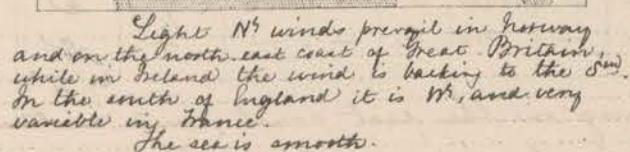 Light Nly winds prevail in Norway
and on the north east coast of Great Britain,
while in Ireland the wind is backing to the Swd.
In the south of England it is Wly, and very
variable in France.
The sea is smooth.